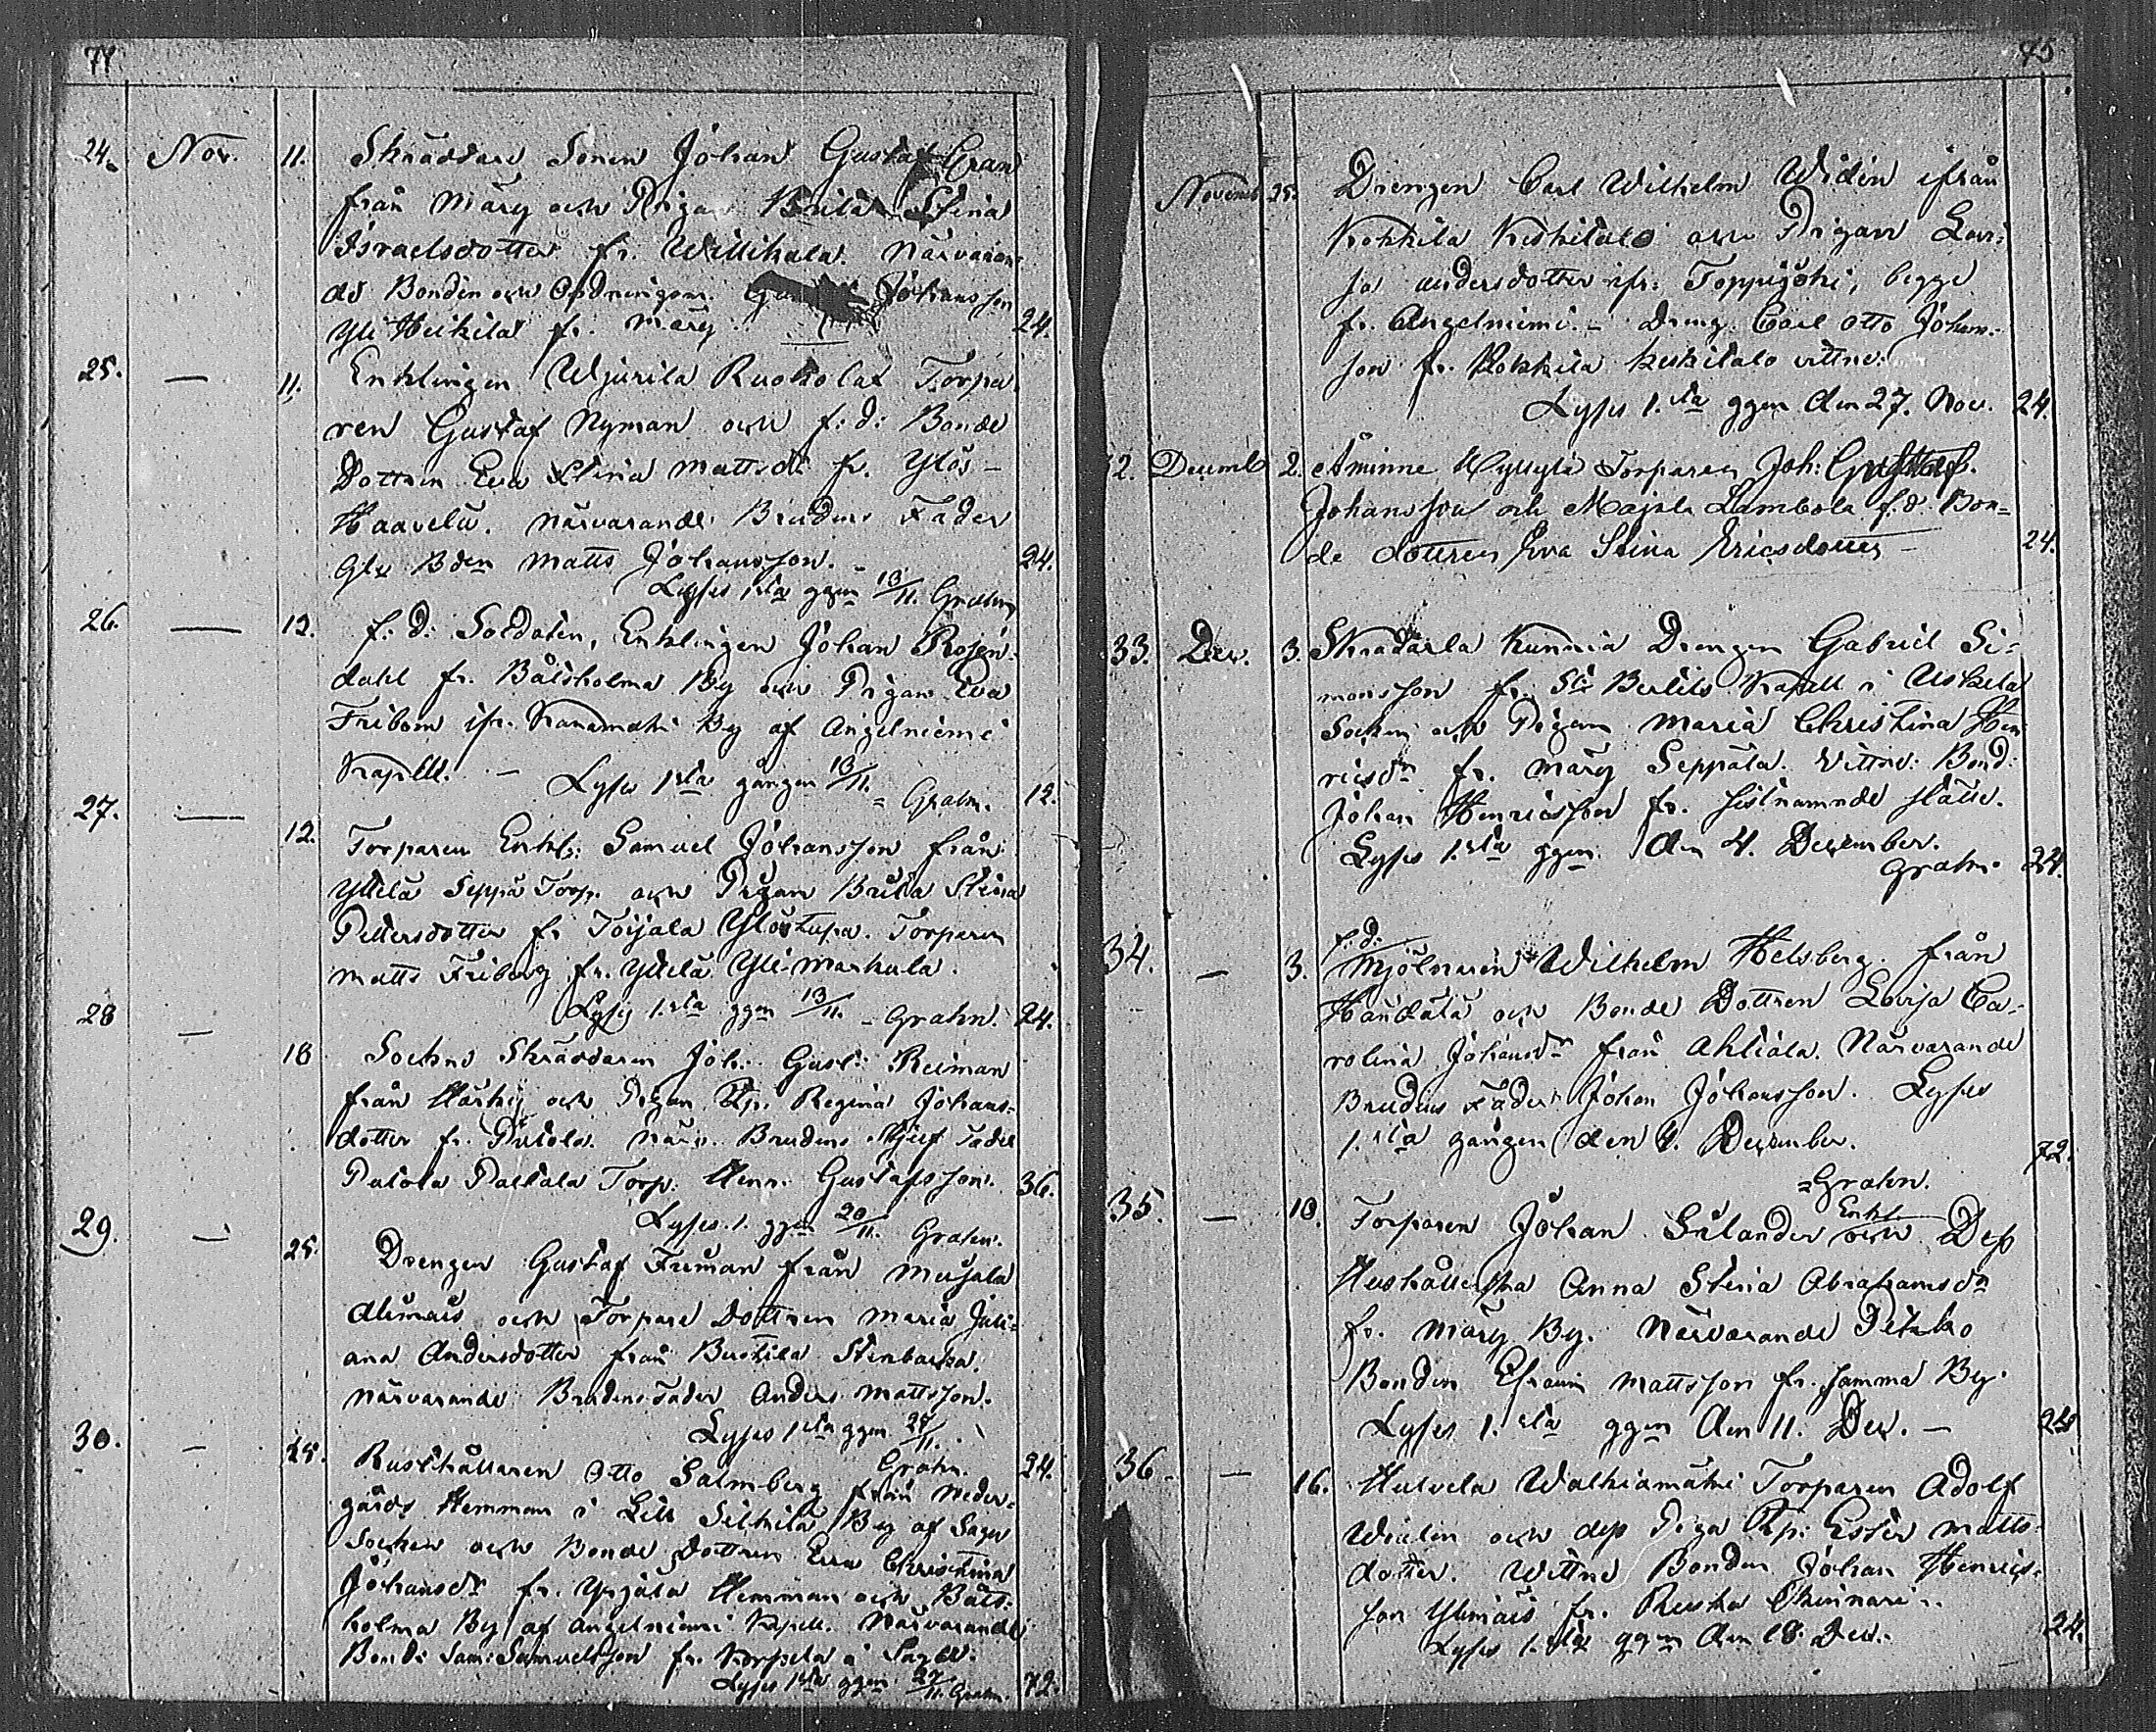 74
24. Nov. 11. Skräddare Sonen Johan Gustaf Gran
från Märy och Pigan Brita Stina
Israelsdotter fr. Willikala. Närvaran-
de Bonden och Johansson
Yli Heikilä fr. Märy. 24.
25. — 11. Enklingen Wjurila Ruokola Torpa
ren Gustaf Nyman och f: d: Bonde
Dottren Eva Stina Mattsdr fr. Ylös-
Haavela. Närvarande Brudens Fader
Gle Bden Matts Johansson. - 24.
Lyses 1sta ggen 13/11. Grahn
26. — 12. f: d: Soldaten, Enklingen Johan Rosen-
dahl fr. Båtsholma By och Pigan Eva
Fribom ifr. By af Angelniemi
Kapell. — Lyses 1sta gången 13/11. Grahn. 12.
27. — 12. Torparen Enkl: Samuel Johansson från
Yttelä Seppä Torp. och Pigan Brita Stina
Pettersdotter fr Toijala Ylöstupa. Torparen
Matts Friberg fr. Yttelä Yli-Markula.
Lyses 1.sta ggen 13/11. - Grahn. 24.
28 — 18 Sockne Skräddaren Joh: Gust: Reiman
från och Pigan Hp. Regina Johans-
dotter fr. Närv. Brudens Stjuf Fader
Torp. Henr: Gustafsson. 36.
Lyses 1. ggen 20/11. Grahn.
29. — 25. Drengen Gustaf Freman från
och Torpare Dottren Maria Juli-
ana Andersdotter från Stenbacka.
Närvarande Brudens Fader Anders Mattsson.
Lyses 1sta ggen 27/11.
Grahn. 24.
30. — 25. Rusthållaren Otto Salmberg från Neder-
gårds Hemman i By af Sagu
Socken och Bonde Dottren Eva Christina
Johansdr fr. Hemman och Båts-
holma By af Angelniemi Kapell. Närvarande
Bond: Sam: Samuelsson fr. Korpela i Sagu.
Lyses 1sta ggen 27/11. Grahn. 72.
75
Novemb 25. Drengen Carl Wilhelm Widén ifrån
Kokkila Keskitalo och Pigan Lovi-
sa Andersdotter ifr: Toppjoki, begge
fr. Angelniemi. - Dreng. Carl Otto Johans-
son fr. Kokkila Keskitalo vittne.
Lyses 1.sta ggen den 27. Nov. 24.
32. Decemb 2. Åminne Torparen Joh: Gustaf
Johansson och Lambola f.d. Bon-
de dottren Eva Stina Ericsdotter — 24.
33. Dec. 3. Drengen Gabriel Si-
monsson fr. St: Bertils Kapell i Uskela
Socken och Pigan Maria Christina Hen
ricsdr fr. Märy Seppälä. Vittne: Bond:
Johan Henricsson fr. sistnämnde ställe.
Lyses 1.sta ggen den 4. December.
Grahn. 24.
34. — 3. f. d.
Mjölnaren Wilhelm Helsberg. från
och Bonde Dottren Lovisa Ca-
rolina Johansdr från Ahtiala. Närvarande
Brudens Fader Johan Johansson. Lyses
1.sta gången den 4. December. 72.
Grahn.
35. — 10. Torparen Johan Selander Enkl. och Dess
Hushållerska Anna Stina Abrahamsdr
fr. Märy By. Närvarande
Bonden Efraim Mattsson fr. samma By.
Lyses 1.sta ggen den 11. Dec. — 24
36. — 16. Torparen Adolf
och dess Piga Hp: Ester Matts-
dotter. Wittne Bonden Johan Henrics-
son fr.
Lyses 1.sta ggen den 18. Dec. 24.